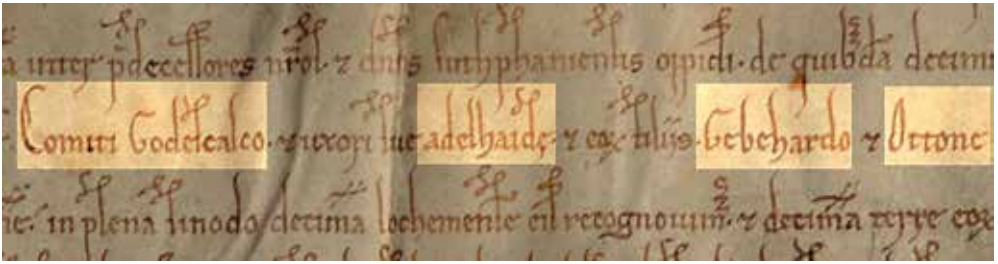 a inter p̄decessores nr̄os. & dn̄os suthphaniensis opidi. de quibdā decimi
Comiti Godescalco. & uxori sue adelhaidę. & eoꝝ filiis. Gebehardo & Ottone
in plena sinodo decima lochemensē eis recognouim. & decimā terre eoꝝ